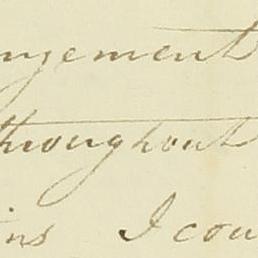 ngement
throughout
ins I cou